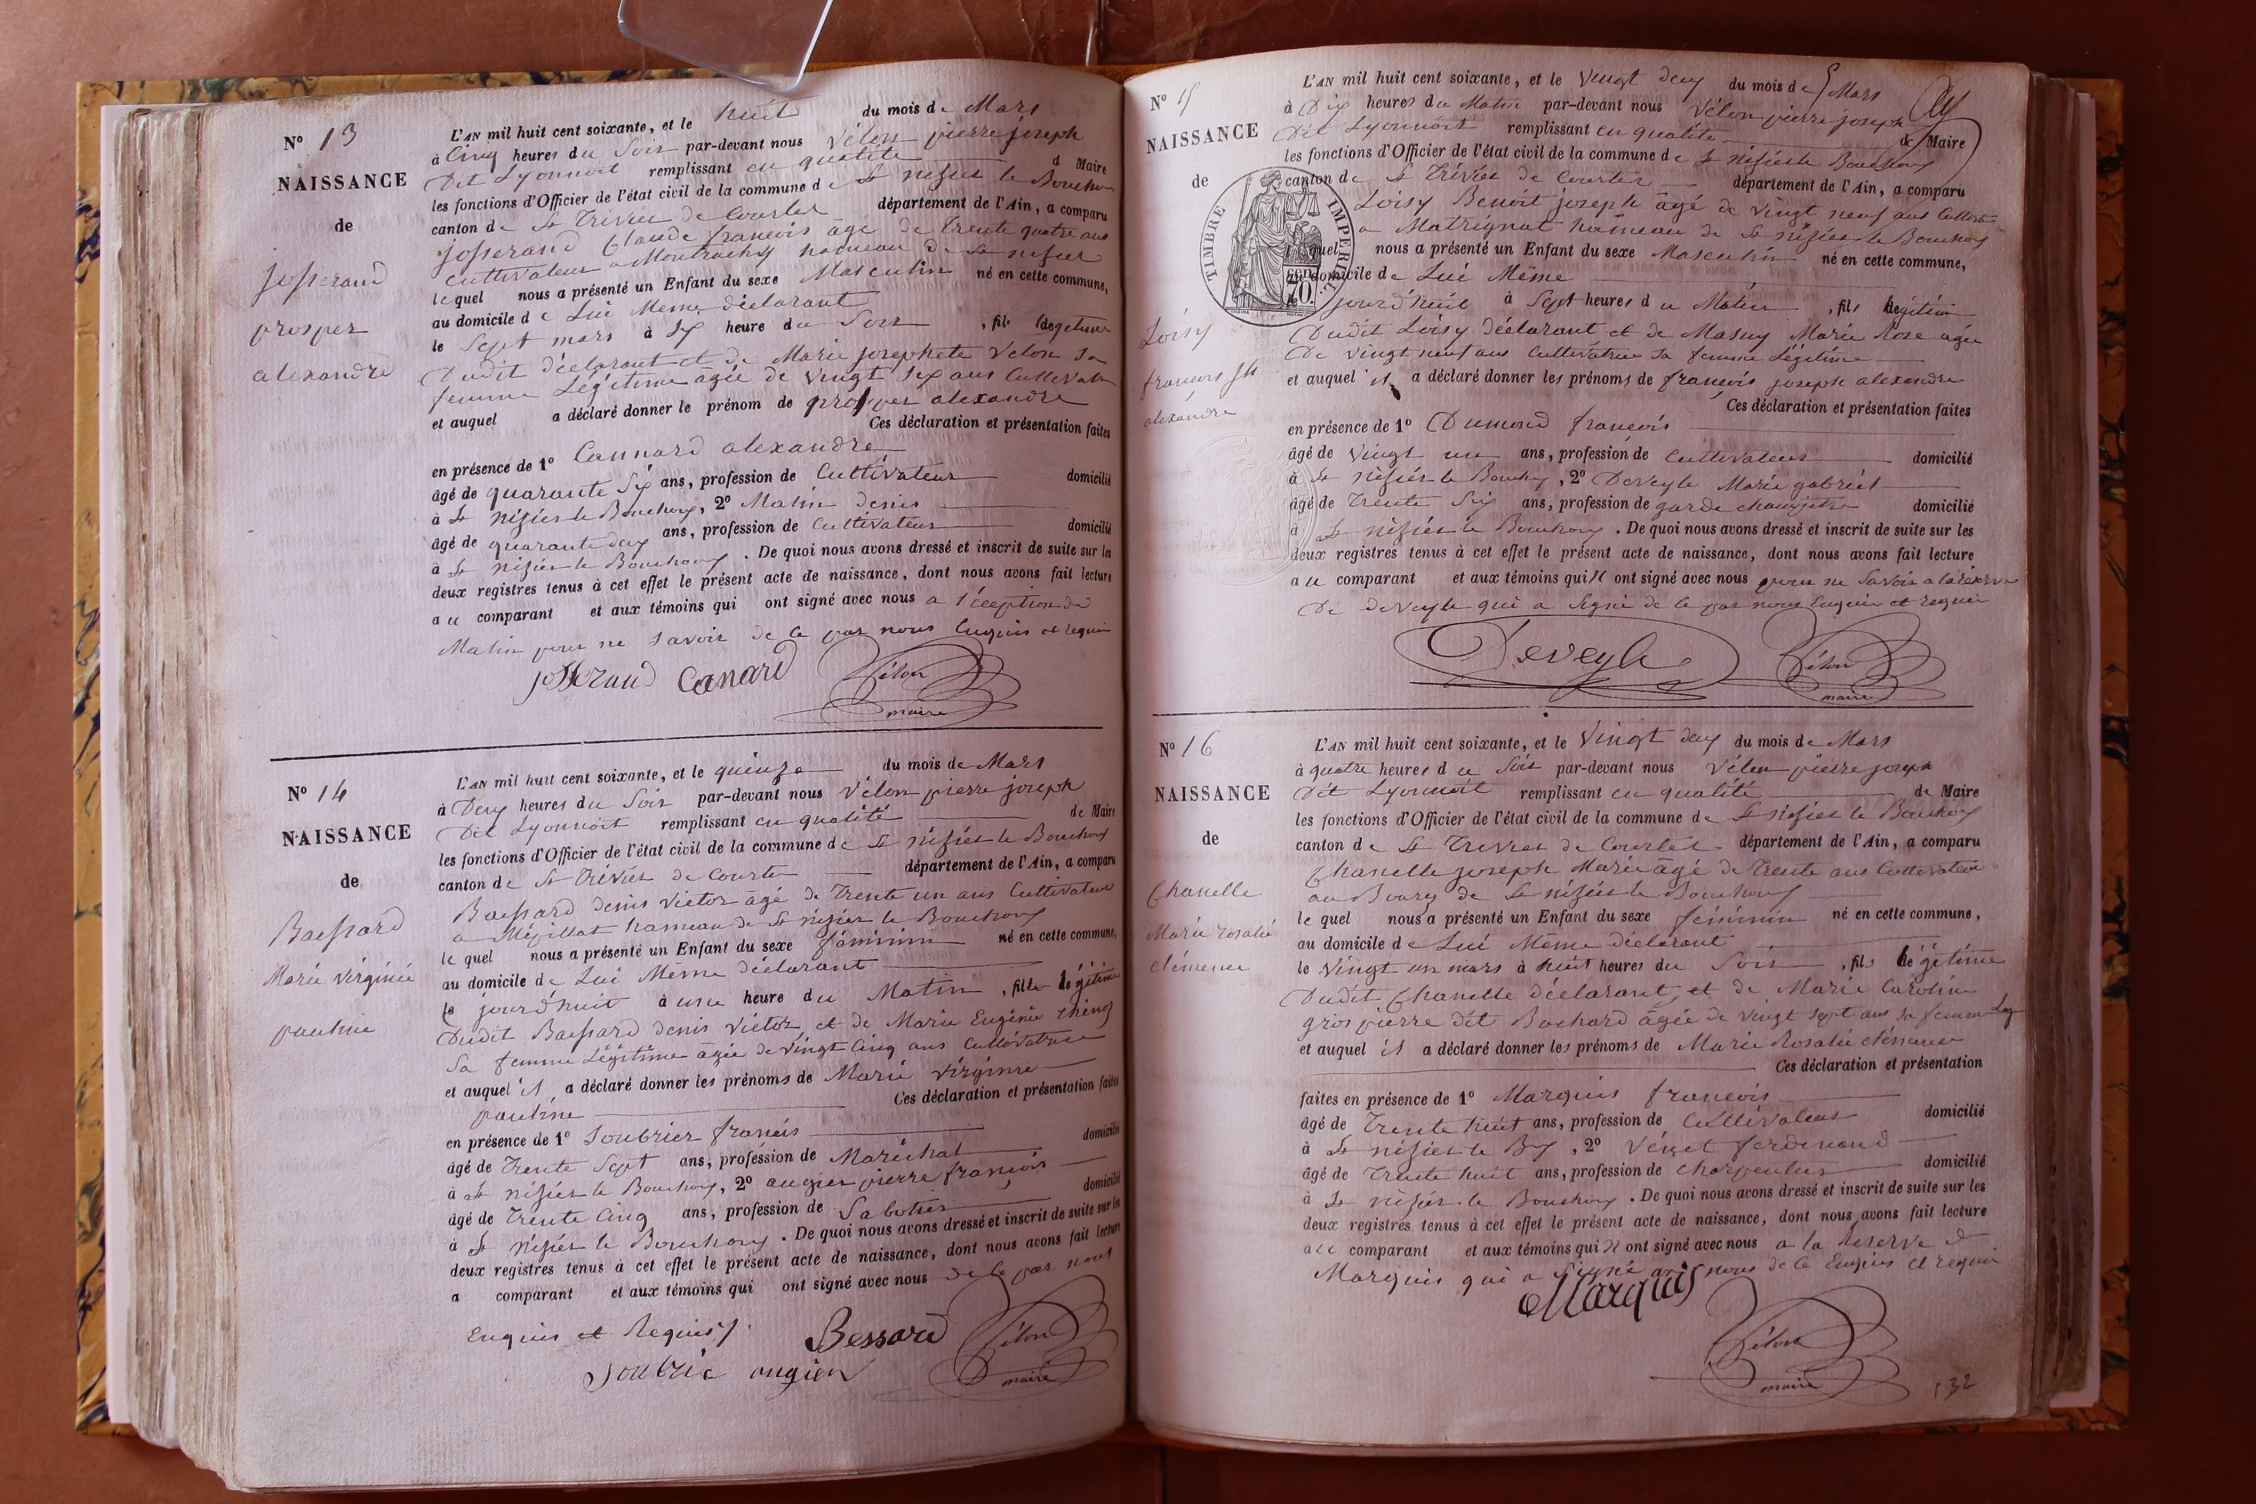 N° 13
NAISSANCE
de
Josserand
prosper
alexandre
L'AN mil huit cent soixante, et le huit du mois de Mars
à Cinq heures du Soir par-devant nous Vélon pierre joseph
Dit Lyonnoit remplissant en qualité d Maire
les fonctions d'Officier de l'état civil de la commune de St nisier le Bouchoux
canton de St Trivier de Courtes département de l'Ain, a comparu
josserand Claude francois âgé de Trente quatre ans
Cultivateur a Montrachy hameau de St nisier
lequel nous a présenté un Enfant du sexe Masculin né en cette commune,
au domicile de Lui Meme déclarant
le Sept mars à Six heure du Soir, fils légitime
Dudit déclarant et de Marie josephete Velon sa
femme Légitime âgée de Vingt Six ans Cultivat
et auquel a déclaré donner le prénom de prosper alexandre
Ces déclaration et présentation faites
en présence de 1° Cannard alexandre
âgé de quarante Six ans, profession de Cultivateur domicilié
à St nisier le Bouchoux, 2° Matin denis
âgé de quarante deux ans, profession de Cultivateur domicilié
à St nisier le Bouchoux. De quoi nous avons dressé et inscrit de suite sur les
deux registres tenus à cet effet le présent acte de naissance, dont nous avons fait lecture
au comparant et aux témoins qui ont signé avec nous a l'éception de
Matin pour ne Savoir de ce par nous Enquis et requis
josserand Canard Vélon
maire
N° 14
NAISSANCE
de
Baissard
Marie virginie
pauline
L'AN mil huit cent soixante, et le quinze du mois de Mars
à Deux heures du Soir par-devant nous Vélon pierre joseph
Dit Lyonnoit remplissant en qualité de Maire
les fonctions d'Officier de l'état civil de la commune de St nisier le Bouchoux
canton de St Trivier de Courtes département de l'Ain, a comparu
Baissard denis Victor âgé de Trente un ans Cultivateur
a Mépillat hameau de St nisier le Bouchoux
le quel nous a présenté un Enfant du sexe féminim né en cette commune,
au domicile de Lui Même déclarant
le jourd'huit à une heure du Matin, fille légitime
Dudit Baissard denis Victor et de Marie Eugénie
Sa femme Légitime âgée de Vingt Cinq ans Cultivatrice
et auquel il a déclaré donner les prénoms de Marie virginie
pauline Ces déclaration et présentation faites
en présence de 1° Soubrier francis
âgé de Trente Sept ans, profession de Maréchal domicilié
à St nisier le Bouchoux, 2° augier pierre françois
âgé de Trente Cinq ans, profession de Sabotier domicilié
à St nisier le Bouchoux. De quoi nous avons dressé et inscrit de suite sur les
deux registres tenus à cet effet le présent acte de naissance, dont nous avons fait lecture
a comparant et aux témoins qui ont signé avec nous de ce par nous
Enquis et Requis
Bessard Vélon
Soubrié ongier maire
N° 15
NAISSANCE
de
Loisy
francois jh
alexandre
TIMBRE IMPERIAL
L'AN mil huit cent soixante, et le Vingt deux du mois de Mars
à Dix heures du Matin par-devant nous Vélon pierre joseph
Dit Lyonnoit remplissant en qualité de Maire
les fonctions d'Officier de l'état civil de la commune de St nisier le Bouchoux
canton de St Trivier de Courtes département de l'Ain, a comparu
Loisy Benoit joseph âgé de Vingt neuf ans Cultivateur
a Matrignat hameau de St nisier le Bouchoux
lequel nous a présenté un Enfant du sexe Masculin né en cette commune,
au domicile de Lui Même
jourd'huit à Sept heures du Matin, fils légitim
Dudit Loisy déclarant et de Masuy Marie Rose agée
De Vingt neuf ans Cultivatrice Sa femme Légitime
et auquel il a déclaré donner les prénoms de francois joseph alexandre
Ces déclaration et présentation faites
en présence de 1° Dumond francois
âgé de Vingt un ans, profession de Cultivateur domicilié
à St nisier le Bouchoux, 2° Deveyle Marie gabriel
âgé de Trente Six ans, profession de garde champêtre domicilié
à St nisier le Bouchoux. De quoi nous avons dressé et inscrit de suite sur les
deux registres tenus à cet effet le présent acte de naissance, dont nous avons fait lecture
au comparant et aux témoins qui n ont signé avec nous pour ne Savoir a la réserve
De deveyle qui a Signé de ce par nous Enquis et requis
Deveyle Vélon
maire
N° 16
NAISSANCE
de
Chanelle
Marie rosalie
clémence
L'AN mil huit cent soixante, et le Vingt deux du mois de Mars
à quatre heures du Soir par-devant nous Vélon pierre joseph
Dit Lyonnoit remplissant en qualité de Maire
les fonctions d'Officier de l'état civil de la commune de St nisier le Bouchoux
canton de St Trivier de Courtes département de l'Ain, a comparu
Chanelle joseph Marie âgé de Trente ans Cultivateur
au Bourg de St nisier le Bouchoux
le quel nous a présenté un Enfant du sexe féminim né en cette commune,
au domicile de Lui Même déclarant
le Vingt un mars à huit heures du Soir, fils légitime
Dudit Chanelle déclarant et de Marie Caroline
gros pierre dit Bochard âgée de Vingt Sept ans Sa femme Leg
et auquel il a déclaré donner les prénoms de Marie Rosalie clémence
Ces déclaration et présentation
faites en présence de 1° Marquis francois
âgé de Trente huit ans, profession de Cultivateur domicilié
à St nisier le Bx, 2° Véngt ferdinand
âgé de Trente huit ans, profession de Charpentier domicilié
à St nisier le Bouchoux. De quoi nous avons dressé et inscrit de suite sur les
deux registres tenus à cet effet le présent acte de naissance, dont nous avons fait lecture
au comparant et aux témoins qui n ont signé avec nous a la réserve d
Marquis qui a Signé nous de ce Enquis et requis
Marquis
Vélon
maire
132